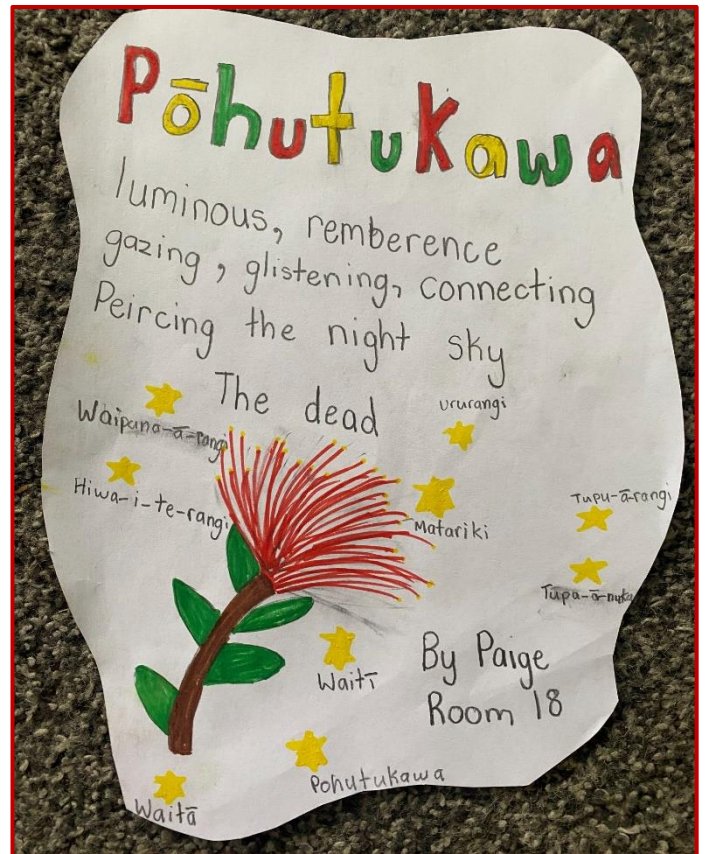 Pōhutukawa
luminous, remberence
gazing, glistening, connecting
Peircing the night sky
The dead
Ururangi
Waipuna-ā-rangi
Hiwa-i-te-rangi
Matariki
Tupu-ā-rangi
Tupa-ā-nuku
Waitī
By Paige
Room 18
Pohutukawa
Waitā